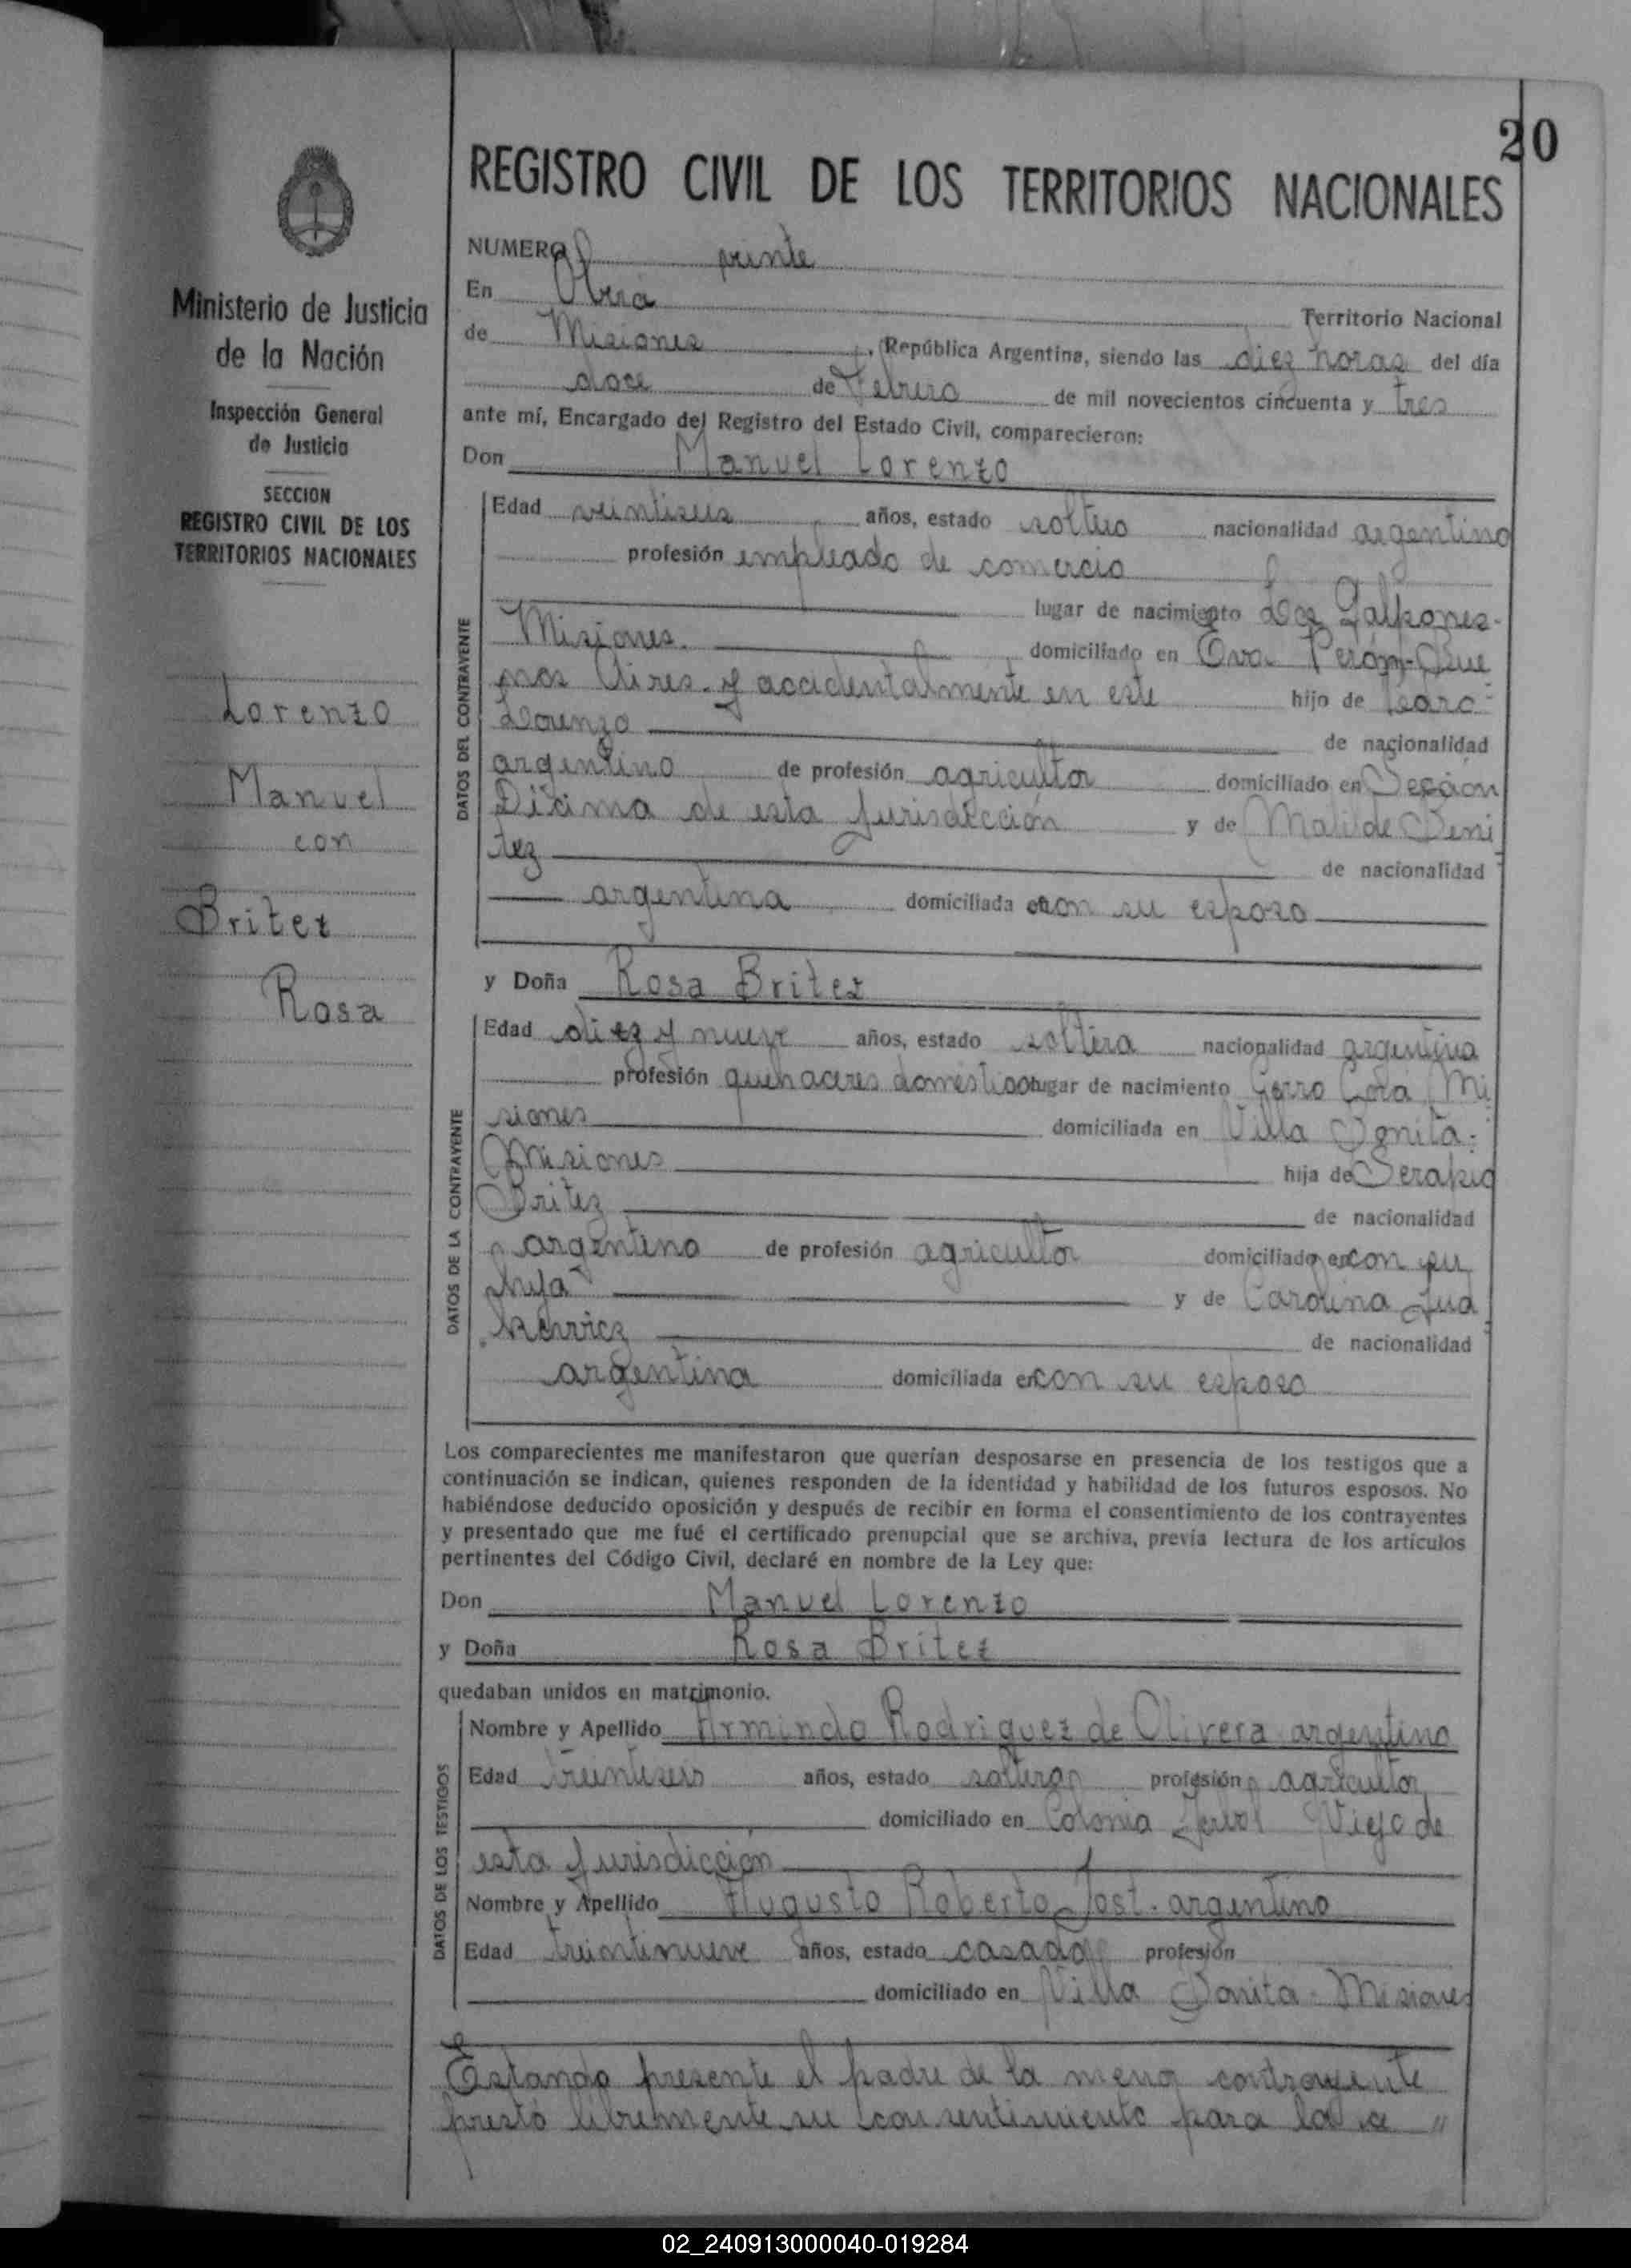 20
REGISTRO CIVIL DE LOS TERRITORIOS NACIONALES
Ministerio de Justicia
de la Nación
Inspección General
de Justicia
SECCION
REGISTRO CIVIL DE LOS
TERRITORIOS NACIONALES
Lorenzo
Manuel
con
Britez
Rosa
NUMERO veinte
En Oberá Territorio Nacional
de Misiones, República Argentina, siendo las diez horas del día
doce de Febrero de mil novecientos cincuenta y tres
ante mí, Encargado del Registro del Estado Civil, comparecieron:
Don Manuel Lorenzo
DATOS DEL CONTRAYENTE
Edad veintiseis años, estado soltero nacionalidad argentino
profesión empleado de comercio
lugar de nacimiento Los Galpones-
Misiones. domiciliado en Eva Perón-Bue
nos Aires. y accidentalmente en este hijo de
Lorenzo de nacionalidad
argentino de profesión agricultor domiciliado en Sección
Décima de esta Jurisdicción y de Matilde Beni
tez de nacionalidad
argentina domiciliada con su esposo
y Doña Rosa Britez
DATOS DE LA CONTRAYENTE
Edad diez y nueve años, estado soltera nacionalidad argentina
profesión quehaceres domésticos lugar de nacimiento Cerro Corá Mi
siones domiciliada en Villa Bonita.
Misiones hija de Serapio
Britez de nacionalidad
argentino de profesión agricultor domiciliado en con su
hija y de Carolina
de nacionalidad
argentina domiciliada en con su esposo
Los comparecientes me manifestaron que querían desposarse en presencia de los testigos que a
continuación se indican, quienes responden de la identidad y habilidad de los futuros esposos. No
habiéndose deducido oposición y después de recibir en forma el consentimiento de los contrayentes
y presentado que me fué el certificado prenupcial que se archiva, previa lectura de los artículos
pertinentes del Código Civil, declaré en nombre de la Ley que:
Don Manuel Lorenzo
y Doña Rosa Britez
quedaban unidos en matrimonio.
DATOS DE LOS TESTIGOS
Nombre y Apellido Armindo Rodriguez de Olivera argentino
Edad treintiseis años, estado soltero profesión agricultor
domiciliado en Colonia Yerbal Viejo de
esta Jurisdicción
Nombre y Apellido Augusto Roberto Jost. argentino
Edad treintinueve años, estado casado profesión
domiciliado en Villa Bonita. Misiones
Estando presente el padre de la menor contrayente
prestó libremente su consentimiento para la
02_240913000040-019284